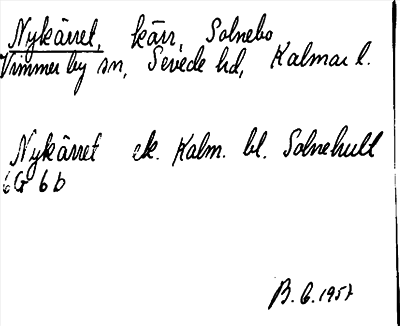 Nykärret, kärr, Solnebo
Vimmerby sn, Sevede hd, Kalmar l.
Nykärret ek. Kalm. bl. Solnehult
6G 6b
B. G. 1957